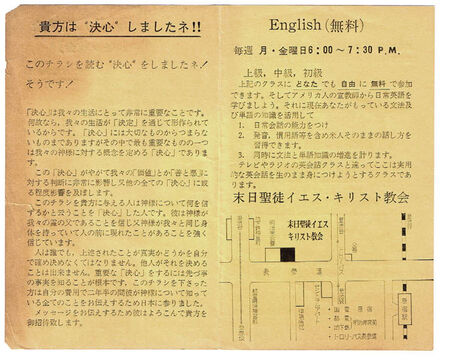 貴方は "決心" しましたネ!!
このチラシを読む "決心" をしましたネ!
そうです!
「決心」は我々の生活にとって非常に重要なことです。
何故なら、我々の生活が「決定」を通して形作られて
いるからです。「決心」には大切なものからつまらな
いものまでありますがその中で最も重要なものの一つ
は我々の神様に対する概念を定める「決心」でありま
す。
この「決心」がやがて我々の「価値」と「善と悪」に
対する判断に非常に影響し又他の全ての「決心」に或
る程度影響を及ぼします。
このチラシを貴方に与える人は神様について何を信
ずるかと云うことを「決心」した人です。彼は神様が
我々の霊の父であることを信じ又神様が我々と同じ身
体を持っていて人の前に現れたことがあることを強く
信じています。
人は誰でも、上述されたことが真実かどうかを自分
で確め決めなくてはなりません。他人がそれを決める
ことは出来ません。重要な「決心」をするには先づ事
の事実を知ることが根本です。このチラシを下さった
方は自分の費用で二年半の間彼が神様について知って
いる全てのことをお伝えするため日本に参りました。
メッセージをお伝えするため彼はよろこんで貴方を
御招待致します。
English (無料)
毎週 月・金曜日 6:00〜7:30 P.M.
上級, 中級, 初級
上記のクラスに どなた でも 自由 に 無料 で参加
できます。そしてアメリカ人の宣教師から日常英語を
学びましよう。それに現在あなたがもっている文法及
び単語の知識を活用して
1. 日常会話の能力をつけ
2. 発音、慣用語等を含め米人そのままの話し方を
習得できます。
3. 同時に文法と単語知識の増進を計ります。
テレビやラジオの英会話クラスと違ってここは実用
的な英会話を生のまま身につけようとするクラスであ
ります。
末日聖徒イエス・キリスト教会
末日聖徒イエス
キリスト教会
表参道
原宿駅